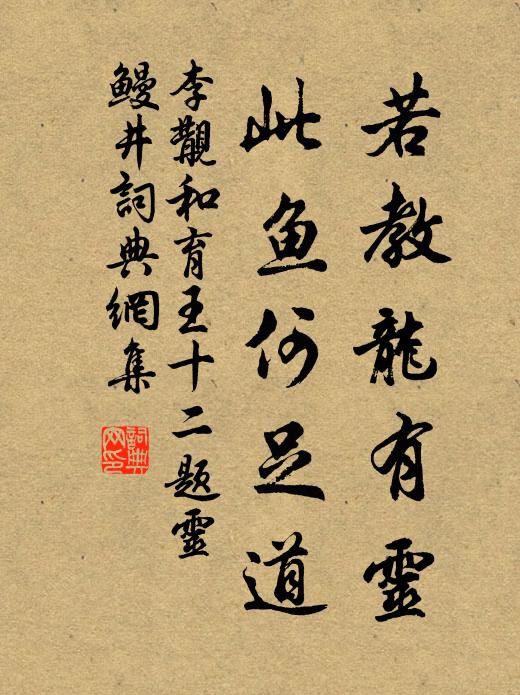 若教龍有靈
此魚何足道
李覯和育王十二題靈
鰻井詞典網集
詞典
网印